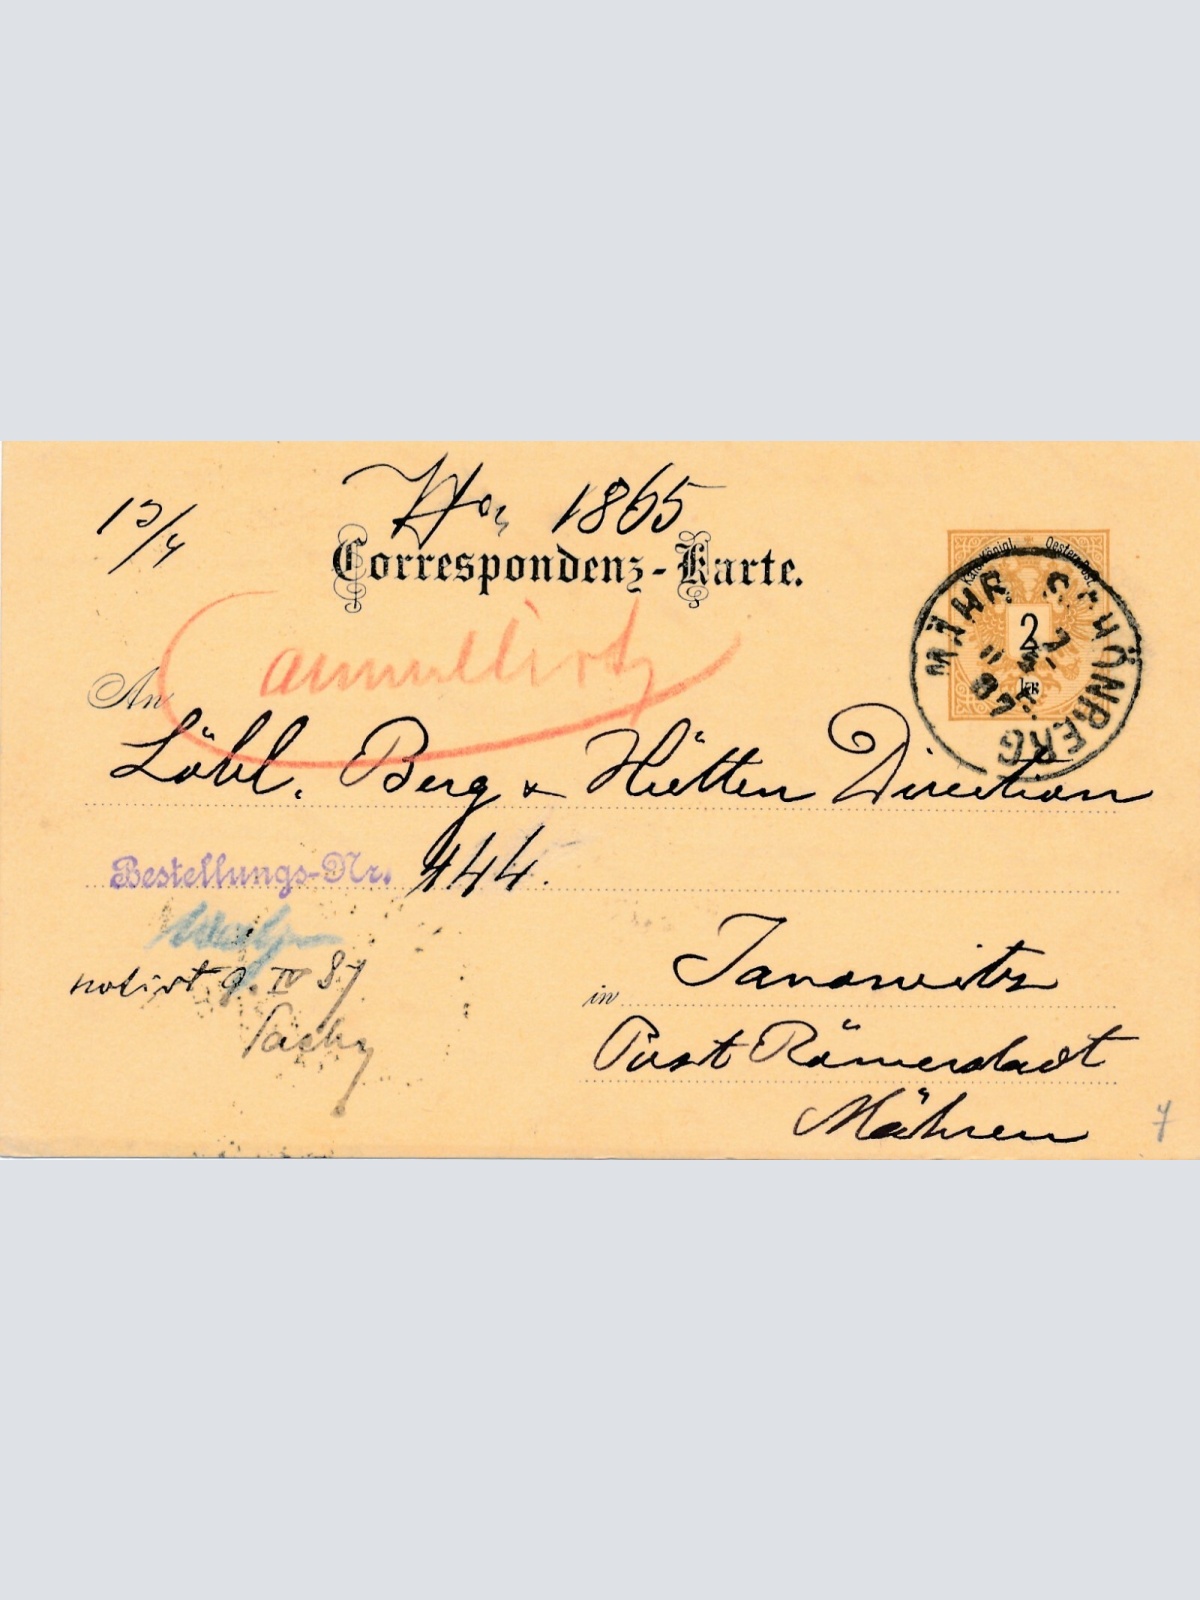 15/4
No. 1865
Correspondenz-Karte.
Kais. Königl. Oesterr. Post.
2
kr
MÄHR. SCHÖNBERG
7
87
annullirt
An
Löbl. Berg & Hütten Direction
Bestellungs-Nr. 444.
notirt 9. IV 87
in Janowitz
Post Römerstadt
Mähren
7